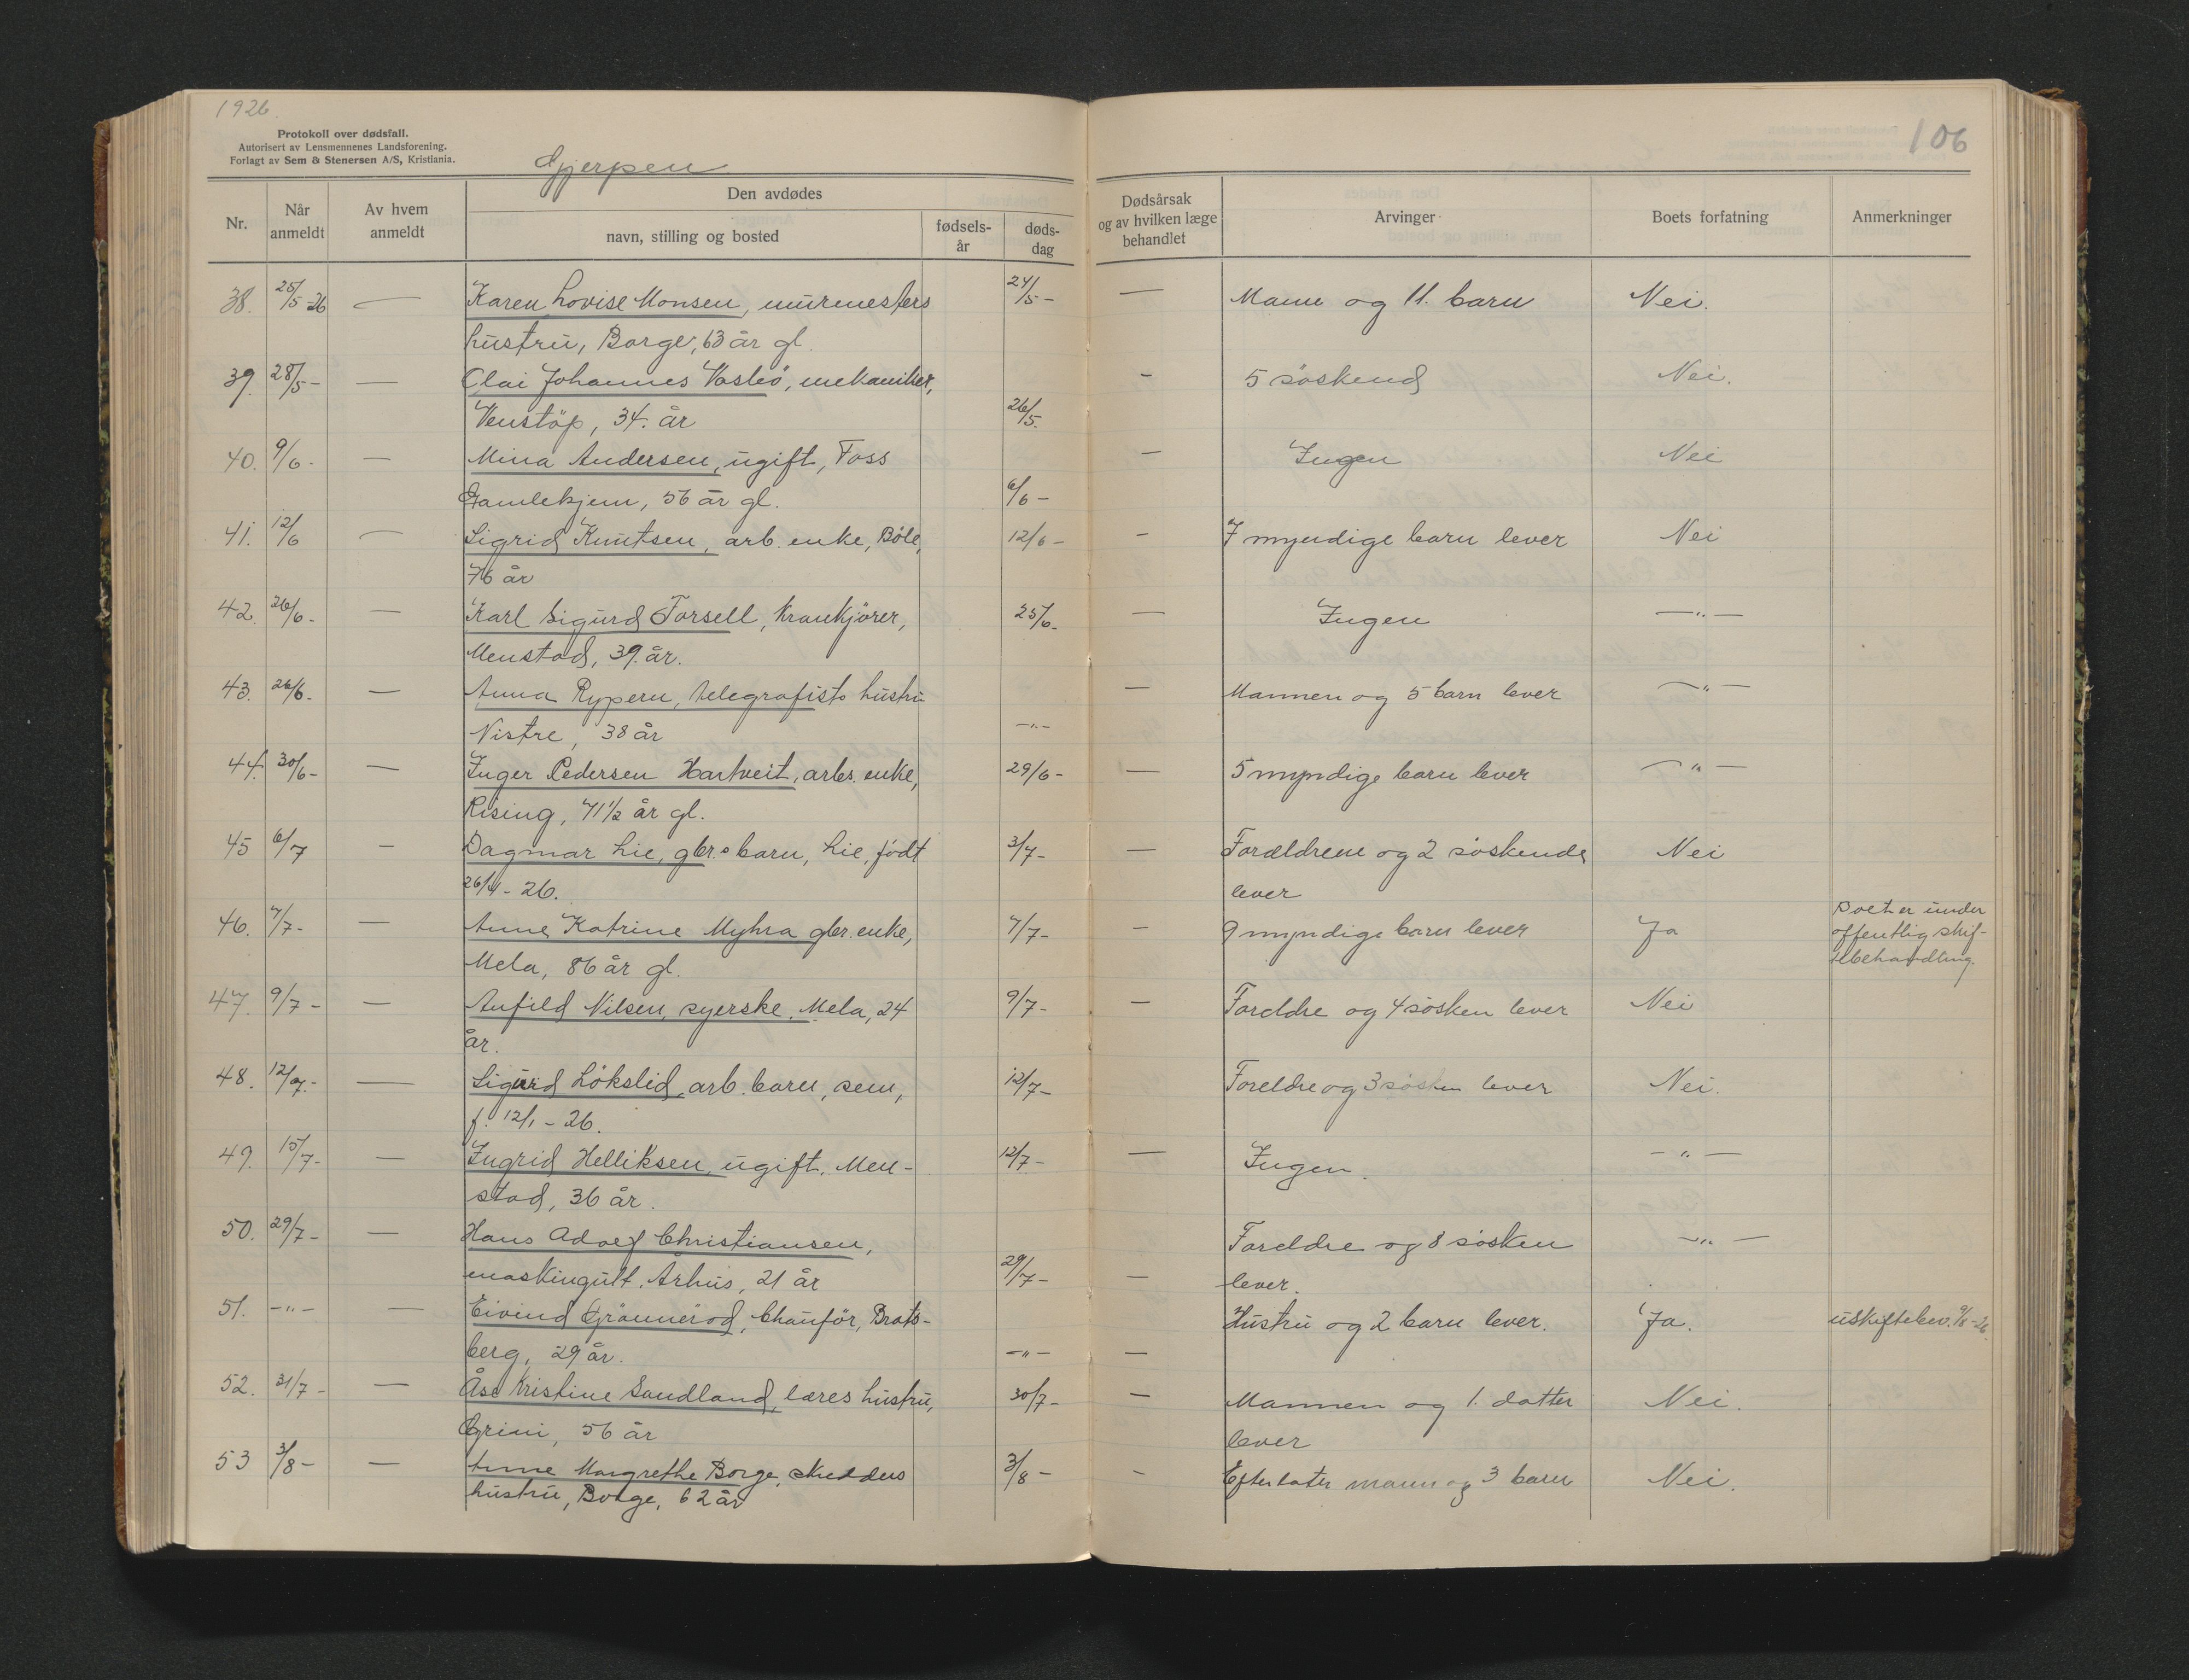 1926.
106
Protokoll over dødsfall.
Autorisert av Lensmennenes Landsforening.
Forlagt av Sem & Stenersen A/S, Kristiania.
Gjerpen
Nr. Når anmeldt Av hvem anmeldt Den avdødes navn, stilling og bosted fødsels-år døds-dag Dødsårsak og av hvilken læge behandlet Arvinger Boets forfatning Anmerkninger
38. 25/5-26 — Karen Lovise Monsen, murmesters 24/5- — Mann og 11. barn Nei.
hustru, Borge, 63 år gl.
39. 28/5- — Olai Johannes, mekaniker, - 5 søskend Nei.
Venstøp, 34. år 26/5.
40. 9/6- — Mina Andersen, ugift, Foss — Ingen Nei
Gamlekjem, 56 år gl. 6/6-
41. 12/6 — Sigrid Knutsen, arb. enke, Bøle, 12/6- - 7 myndige barn lever Nei
76 år
42. 26/6- — Karl Sigurd Torsell, Krankjører, 25/6- — Ingen —"—
Menstad, 39. år.
43. 26/6- — Anna Rypern, telegrafists hustru — Mannen og 5 barn lever —"—
Nistre, 38 år —"—
44. 30/6- — Inger Pedersen Hartveit, arbs. enke, 29/6- — 5 myndige barn lever —"—
Rising, 71½ år gl.
45 6/7 — Dagmar Lie, gbr.s barn, Lie, født 3/7- — Forældrene og 2 søskende Nei
26/4-26. lever
46. 7/7- — Anne Katrine Myhra gbr. enke, 7/7- - 9 myndige barn lever Ja Boet er under
offentlig skif-
tebehandling.
Mela, 86 år gl.
47. 9/7- — Anfild Nilsen, syerske, Mela, 24 9/7- — Foreldre og 4 søsken lever Nei
år.
48. 12/7- — Sigurd Løkslid, arb. barn, sem, 12/7- Foreldre og 3 søsken lever Nei.
f. 12/1-26.
49. 15/7- — Ingrid Helliksen, ugift, Men- 12/7- — Ingen. —"—
stad, 36 år.
50. 29/7- — Hans Adolf Christiansen, Foreldre og 8 søsken —"—
maskingutt. Århus, 21 år 29/7- — lever.
51. —"— — Eivind Grønnerød, Chaufør, Brats- Hustru og 2 barn lever. Ja. uskiftebev. 9/8-26.
berg, 29 år. —"— —
52. 31/7- — Åse Kristine Sandland, læres hustru, 30/7- — Mannen og 1. datter Nei.
Grini, 56 år lever
53 3/8- — Anne Margrethe Borge, skredders 3/8- - Efterlater mann og 3 barn Nei.
hustru, Borge, 62 år